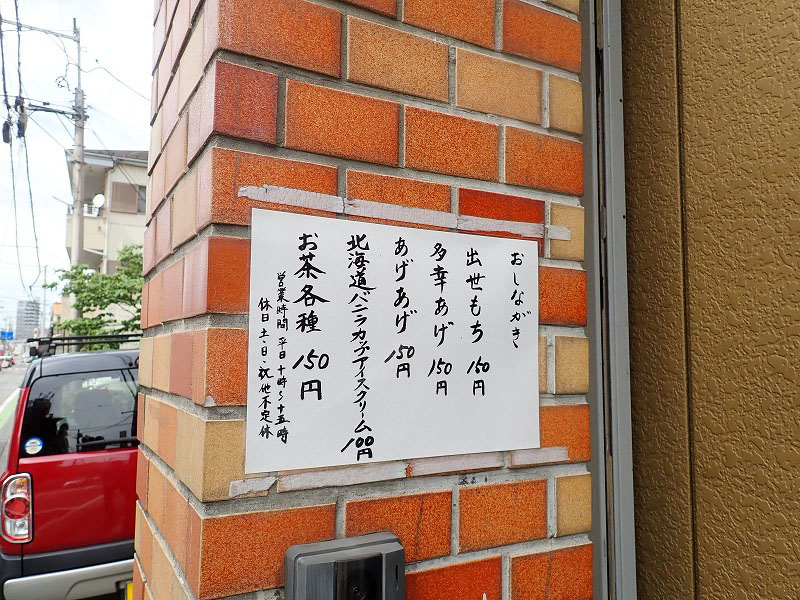 おしながき
出世もち 150円
多幸あげ 150円
あげあげ 150円
北海道バニラカップアイスクリーム 100円
お茶各種 150円
営業時間 平日 十時〜十五時
休日 土・日・祝他不定休